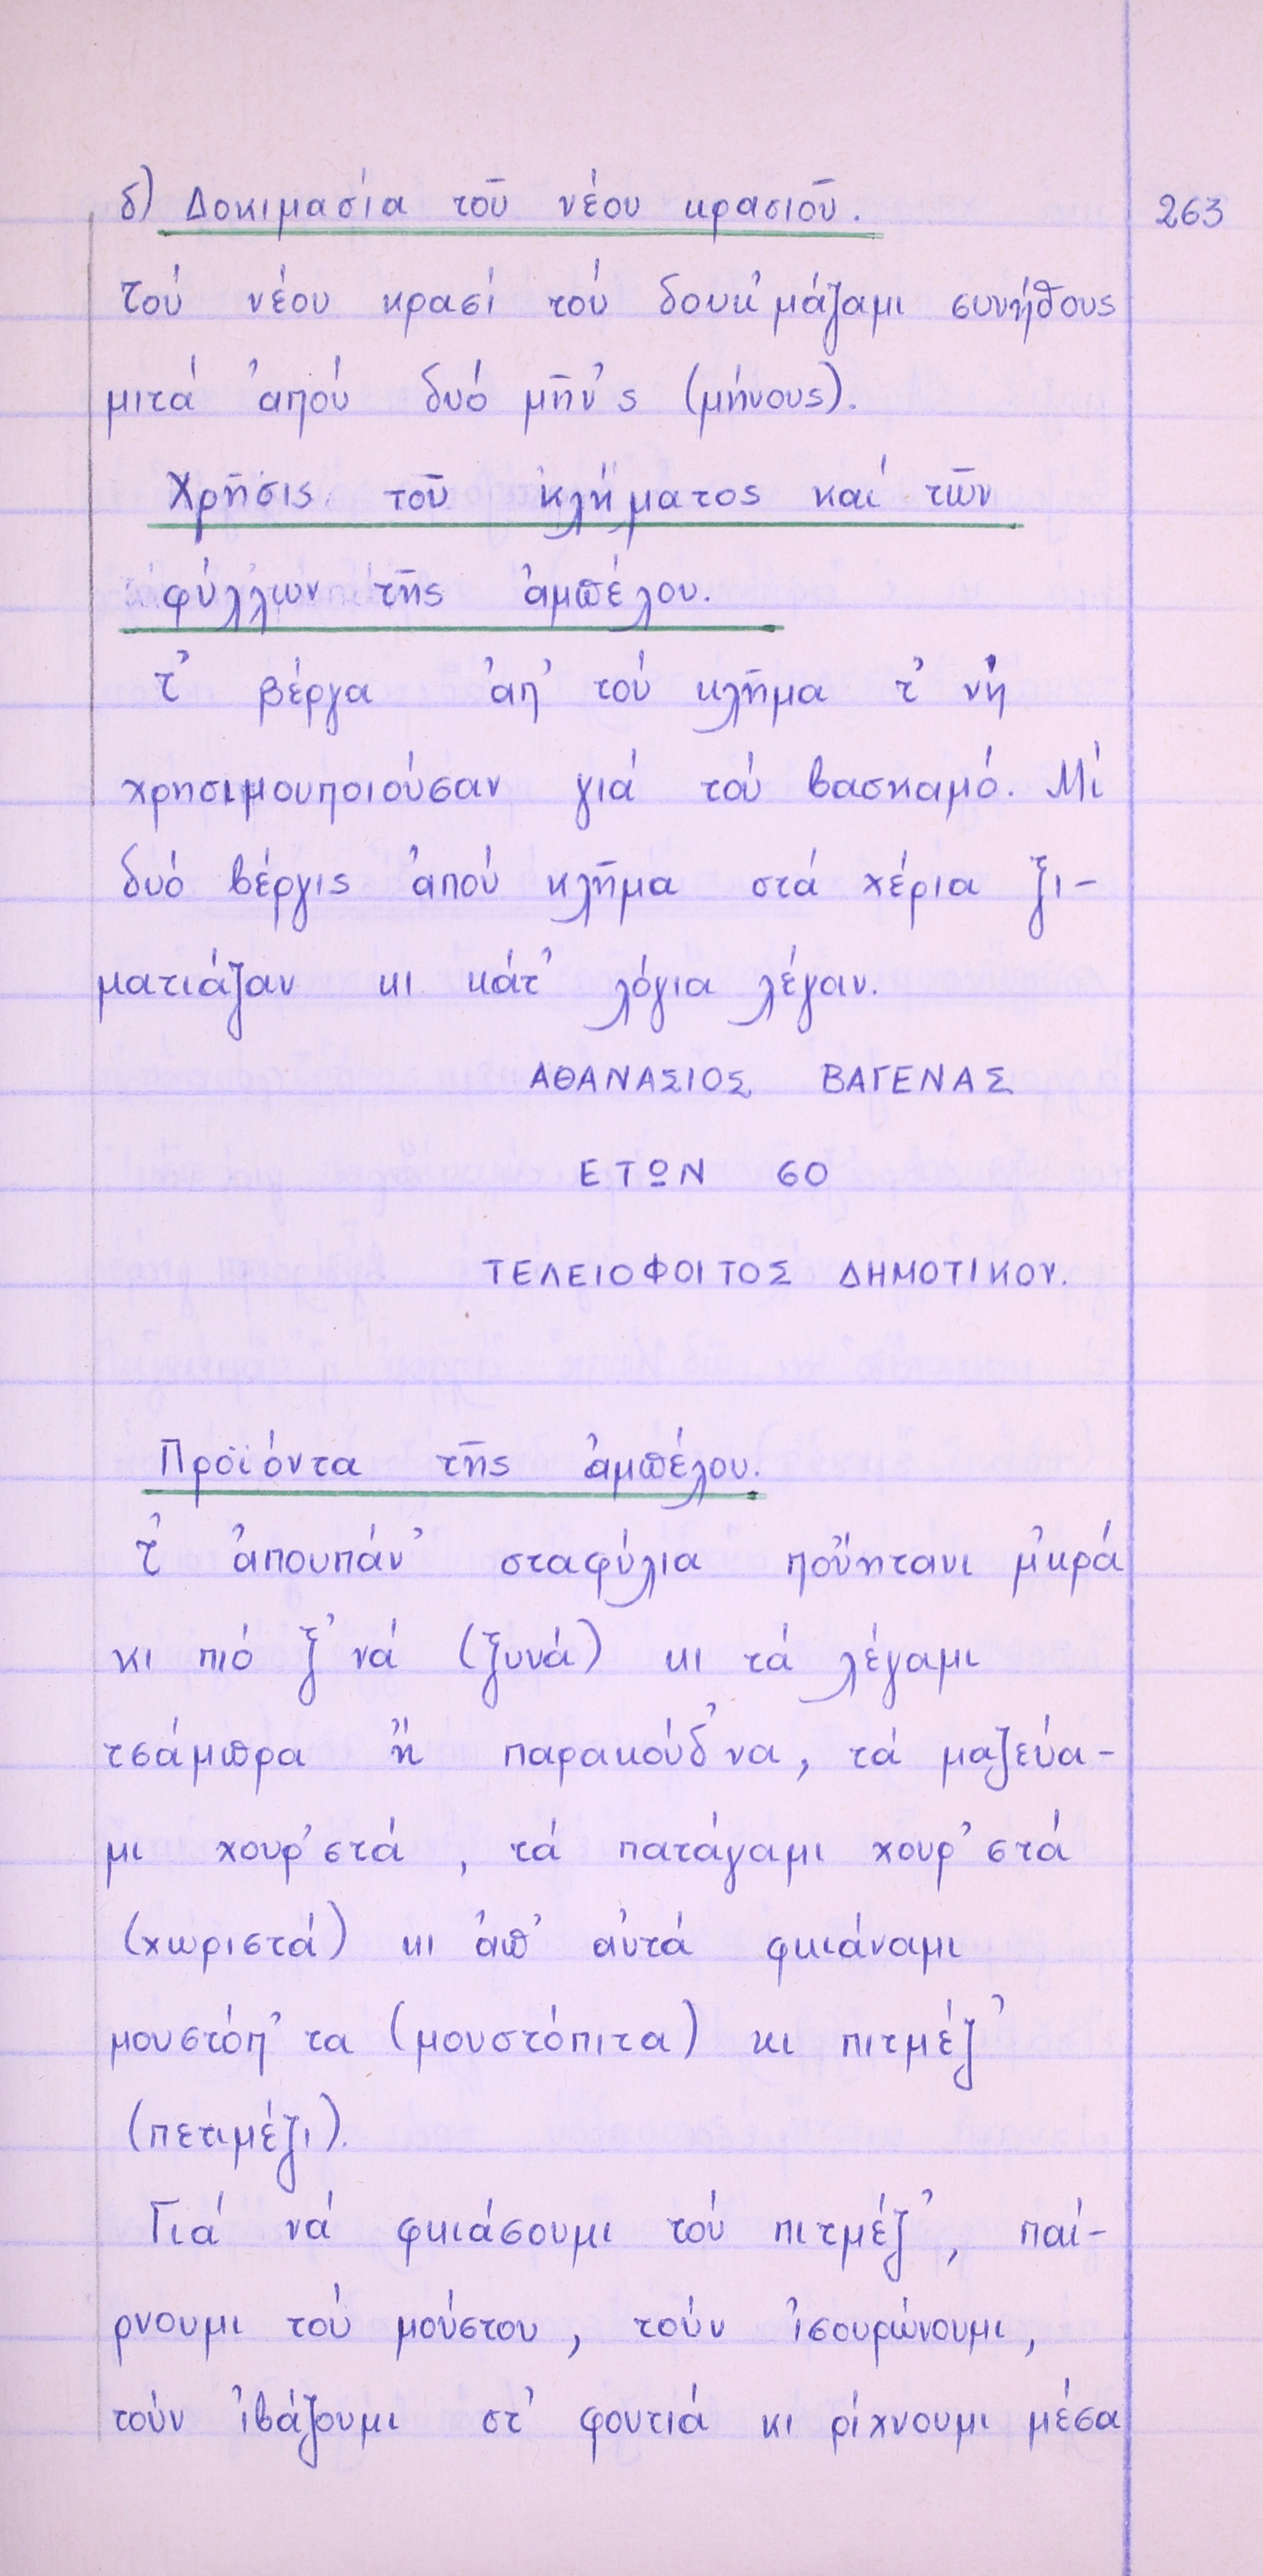 δ) Δοκιμασία τοῦ νέου κρασιοῦ.
263
Τού νέου κρασί τού δουκ'μάζαμι συνήθους
μιτά ἀπού δυό μῆν'ς (μήνους).
Χρῆσις τοῦ κλήματος καί τῶν
φύλλων τῆς ἀμπέλου.
Τ' βέργα ἀπ' τού κλῆμα τ' νή
χρησιμουποιούσαν γιά τού βασκαμό. Μί
δυό βέργις ἀπού κλῆμα στά χέρια ξι-
ματιάζαν κι κάτ' λόγια λέγαν.
ΑΘΑΝΑΣΙΟΣ ΒΑΓΕΝΑΣ
ΕΤΩΝ 60
ΤΕΛΕΙΟΦΟΙΤΟΣ ΔΗΜΟΤΙΚΟΥ.
Προϊόντα τῆς ἀμπέλου.
Τ' ἀπουπάν' σταφύλια ποὔητανι μ'κρά
κι πιό ξ'νά (ξυνά) κι τά λέγαμι
τσάμπρα ἤ παρακούδ'να, τά μαζεύα-
μι χουρ'στά, τά πατάγαμι χουρ'στά
(χωριστά) κι ἀπ' αὐτά φκιάναμι
μουστόπ'τα (μουστόπιτα) κι πιτμέζ'
(πετιμέζι).
Γιά νά φκιάσουμι τού πιτμέζ', παί-
ρνουμι τού μούστου, τούν ἰσουρώνουμι,
τούν ἰβάζουμι στ' φουτιά κι ρίχνουμι μέσα